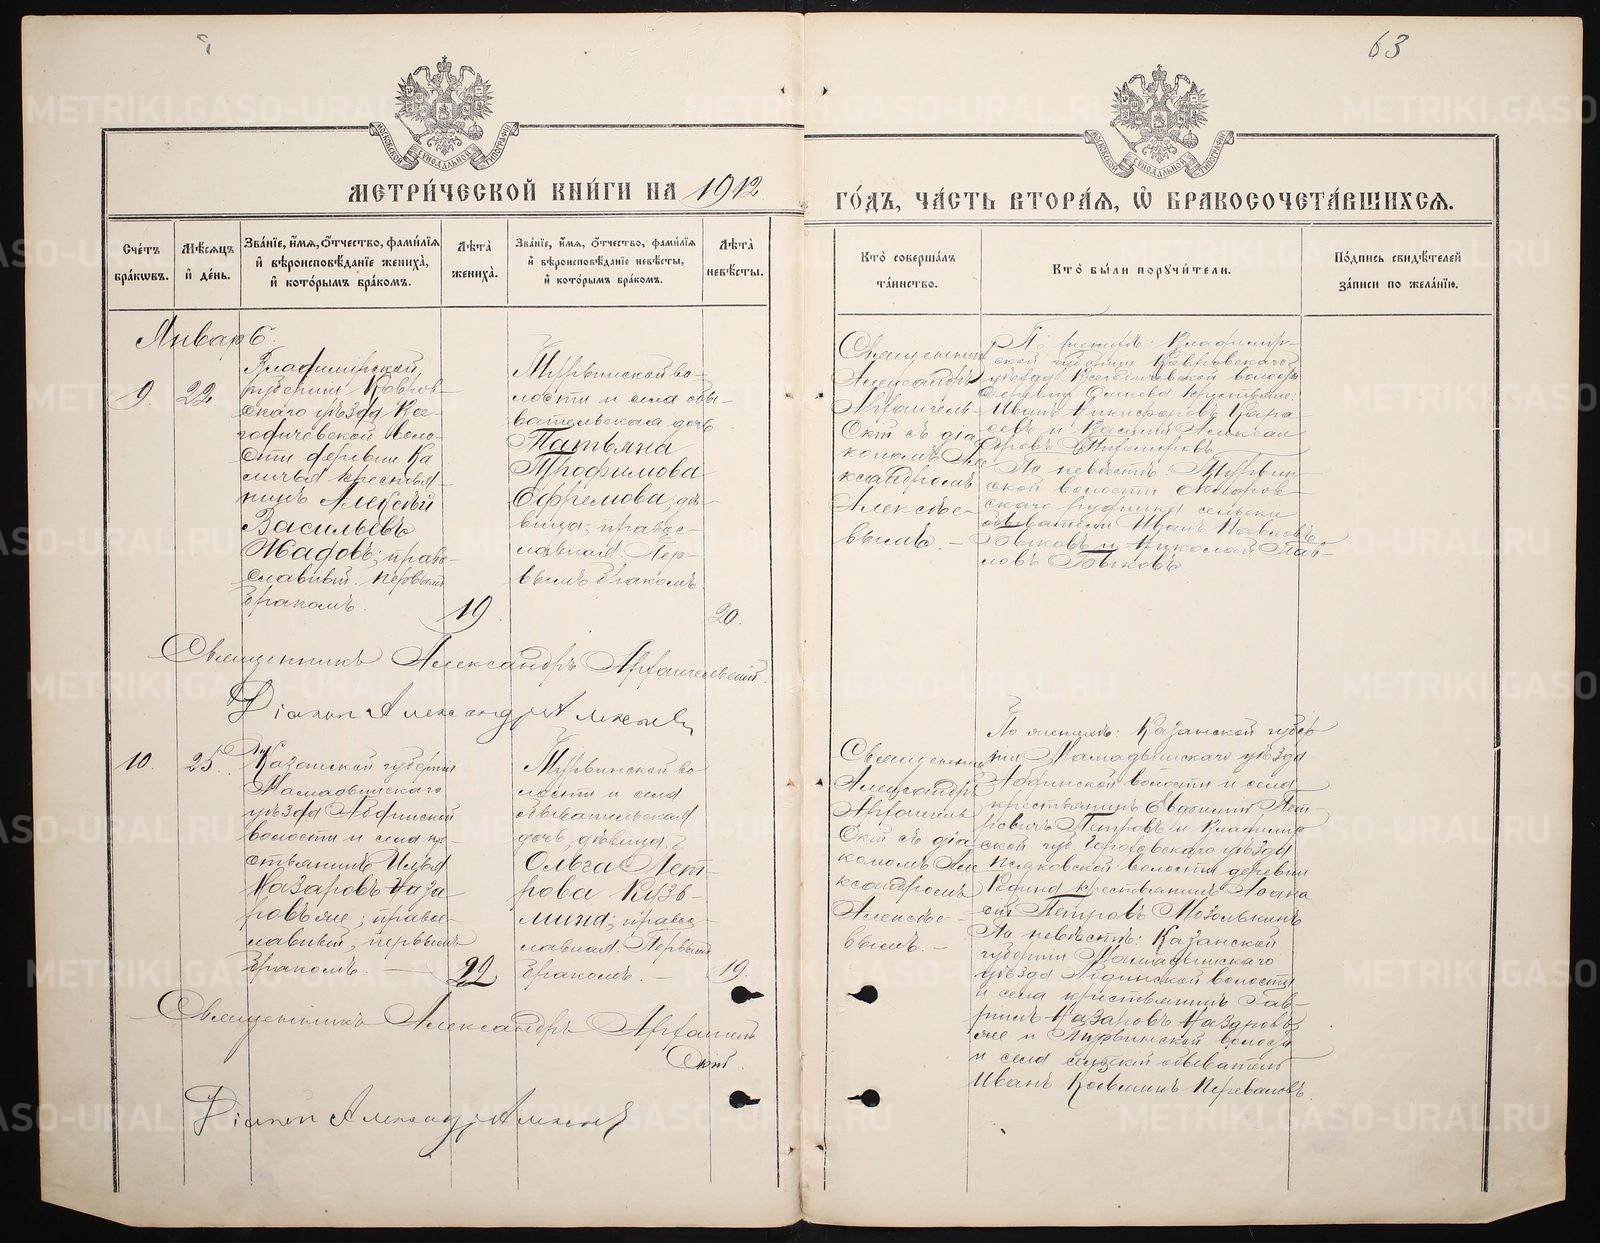 63
МЕТРИ́ЧЕСКОЙ КНИ́ГИ НА 1912
ГО́ДЪ, ЧА́СТЬ ВТОРА́Я, Ѡ҆ БРАКОСОЧЕТА́ВШИХСЯ.
Сче́тъ бра́кѡвъ.
Мѣ́сяцъ и҆ де́нь.
Зва́нїе, и҆́мя, о҆́тчество, фами́лїя и҆ вѣроисповѣ́данїе жениха̀, и҆ кото́рымъ бра́комъ.
Лѣта̀ жениха̀.
Зва́нїе, и҆́мя, о҆́тчество, фами́лїя и҆ вѣроисповѣ́данїе невѣ́сты, и҆ кото́рымъ бра́комъ.
Лѣта̀ невѣ́сты.
Кто̀ соверша́лъ та́инство.
Кто̀ бы́ли поручи́тели.
По́дпись свидѣ́телей за́писи по жела́нїю.
Январь
9
22
Владимірской
губерніи Ковров-
скаго уѣзда Все-
годичевской воло-
сти деревни Ка
личья крестья-
нинъ Алексѣй
Васильевъ
Жадовъ; право-
славный. Первымъ
бракомъ.
19
винской во-
лости и села обы-
вательская дочь
Татьяна
Трофимова
Ефремова, дѣ-
вица; правос-
лавная. Пер-
вымъ бракомъ.
20.
Священникъ
Александръ
Архангель-
скій съ діа
кономъ Але
ксандромъ
Алексѣе-
вымъ. –
По женихѣ: Владимір-
ской губерніи Ковровскаго
уѣзда Всегодичевской волости
деревни крестьяне:
Иванъ Никифоровъ Кара-
севъ и Василій Алексан
дровъ
По невѣстѣ:
ской волости
скаго рудника сельскіе
обыватели Иванъ Павловъ
Быковъ и Николай Пав-
ловъ Быковъ
Священникъ Александръ Архангельскій.
Діаконъ Александръ Алексѣевъ
10.
25.
Казанской губерніи
Мамадышскаго
уѣзда Абдинской
волости и села кре-
стьянинъ Илья
Назаровъ Наза-
ровъ же; правос-
лавный, первымъ
бракомъ. –
22
винской во
лости и села
обывательская
дочь, дѣвица,
Ольга Пет-
рова Кузь-
мина; правос-
лавная. Первымъ
бракомъ. –
19.
Священникъ
Александръ
Архангель-
скій съ діа
кономъ Але
ксандромъ
Алексѣе-
вымъ. –
По женихѣ: Казанской губер
ніи Мамадышскаго уѣзда
Абдинской волости и села
крестьянинъ Евфимій Пет-
ровичъ Петровъ и Владимір
ской губ. Гороховскаго уѣзда
волости деревни
крестьянинъ
Петровъ Мозолькинъ
По невѣстѣ: Казанской
губерніи Мамадышскаго
уѣзда Абдинской волости
и села крестьянинъ Гав-
ріилъ Назаровъ Назаровъ
же и винской волости
и села сельскій обыватель
Иванъ Козьминъ Переваловъ.
Священникъ Александръ Архангель
скій.
Діаконъ Александръ Алексѣевъ
METRIKI.GASO-URAL.RU